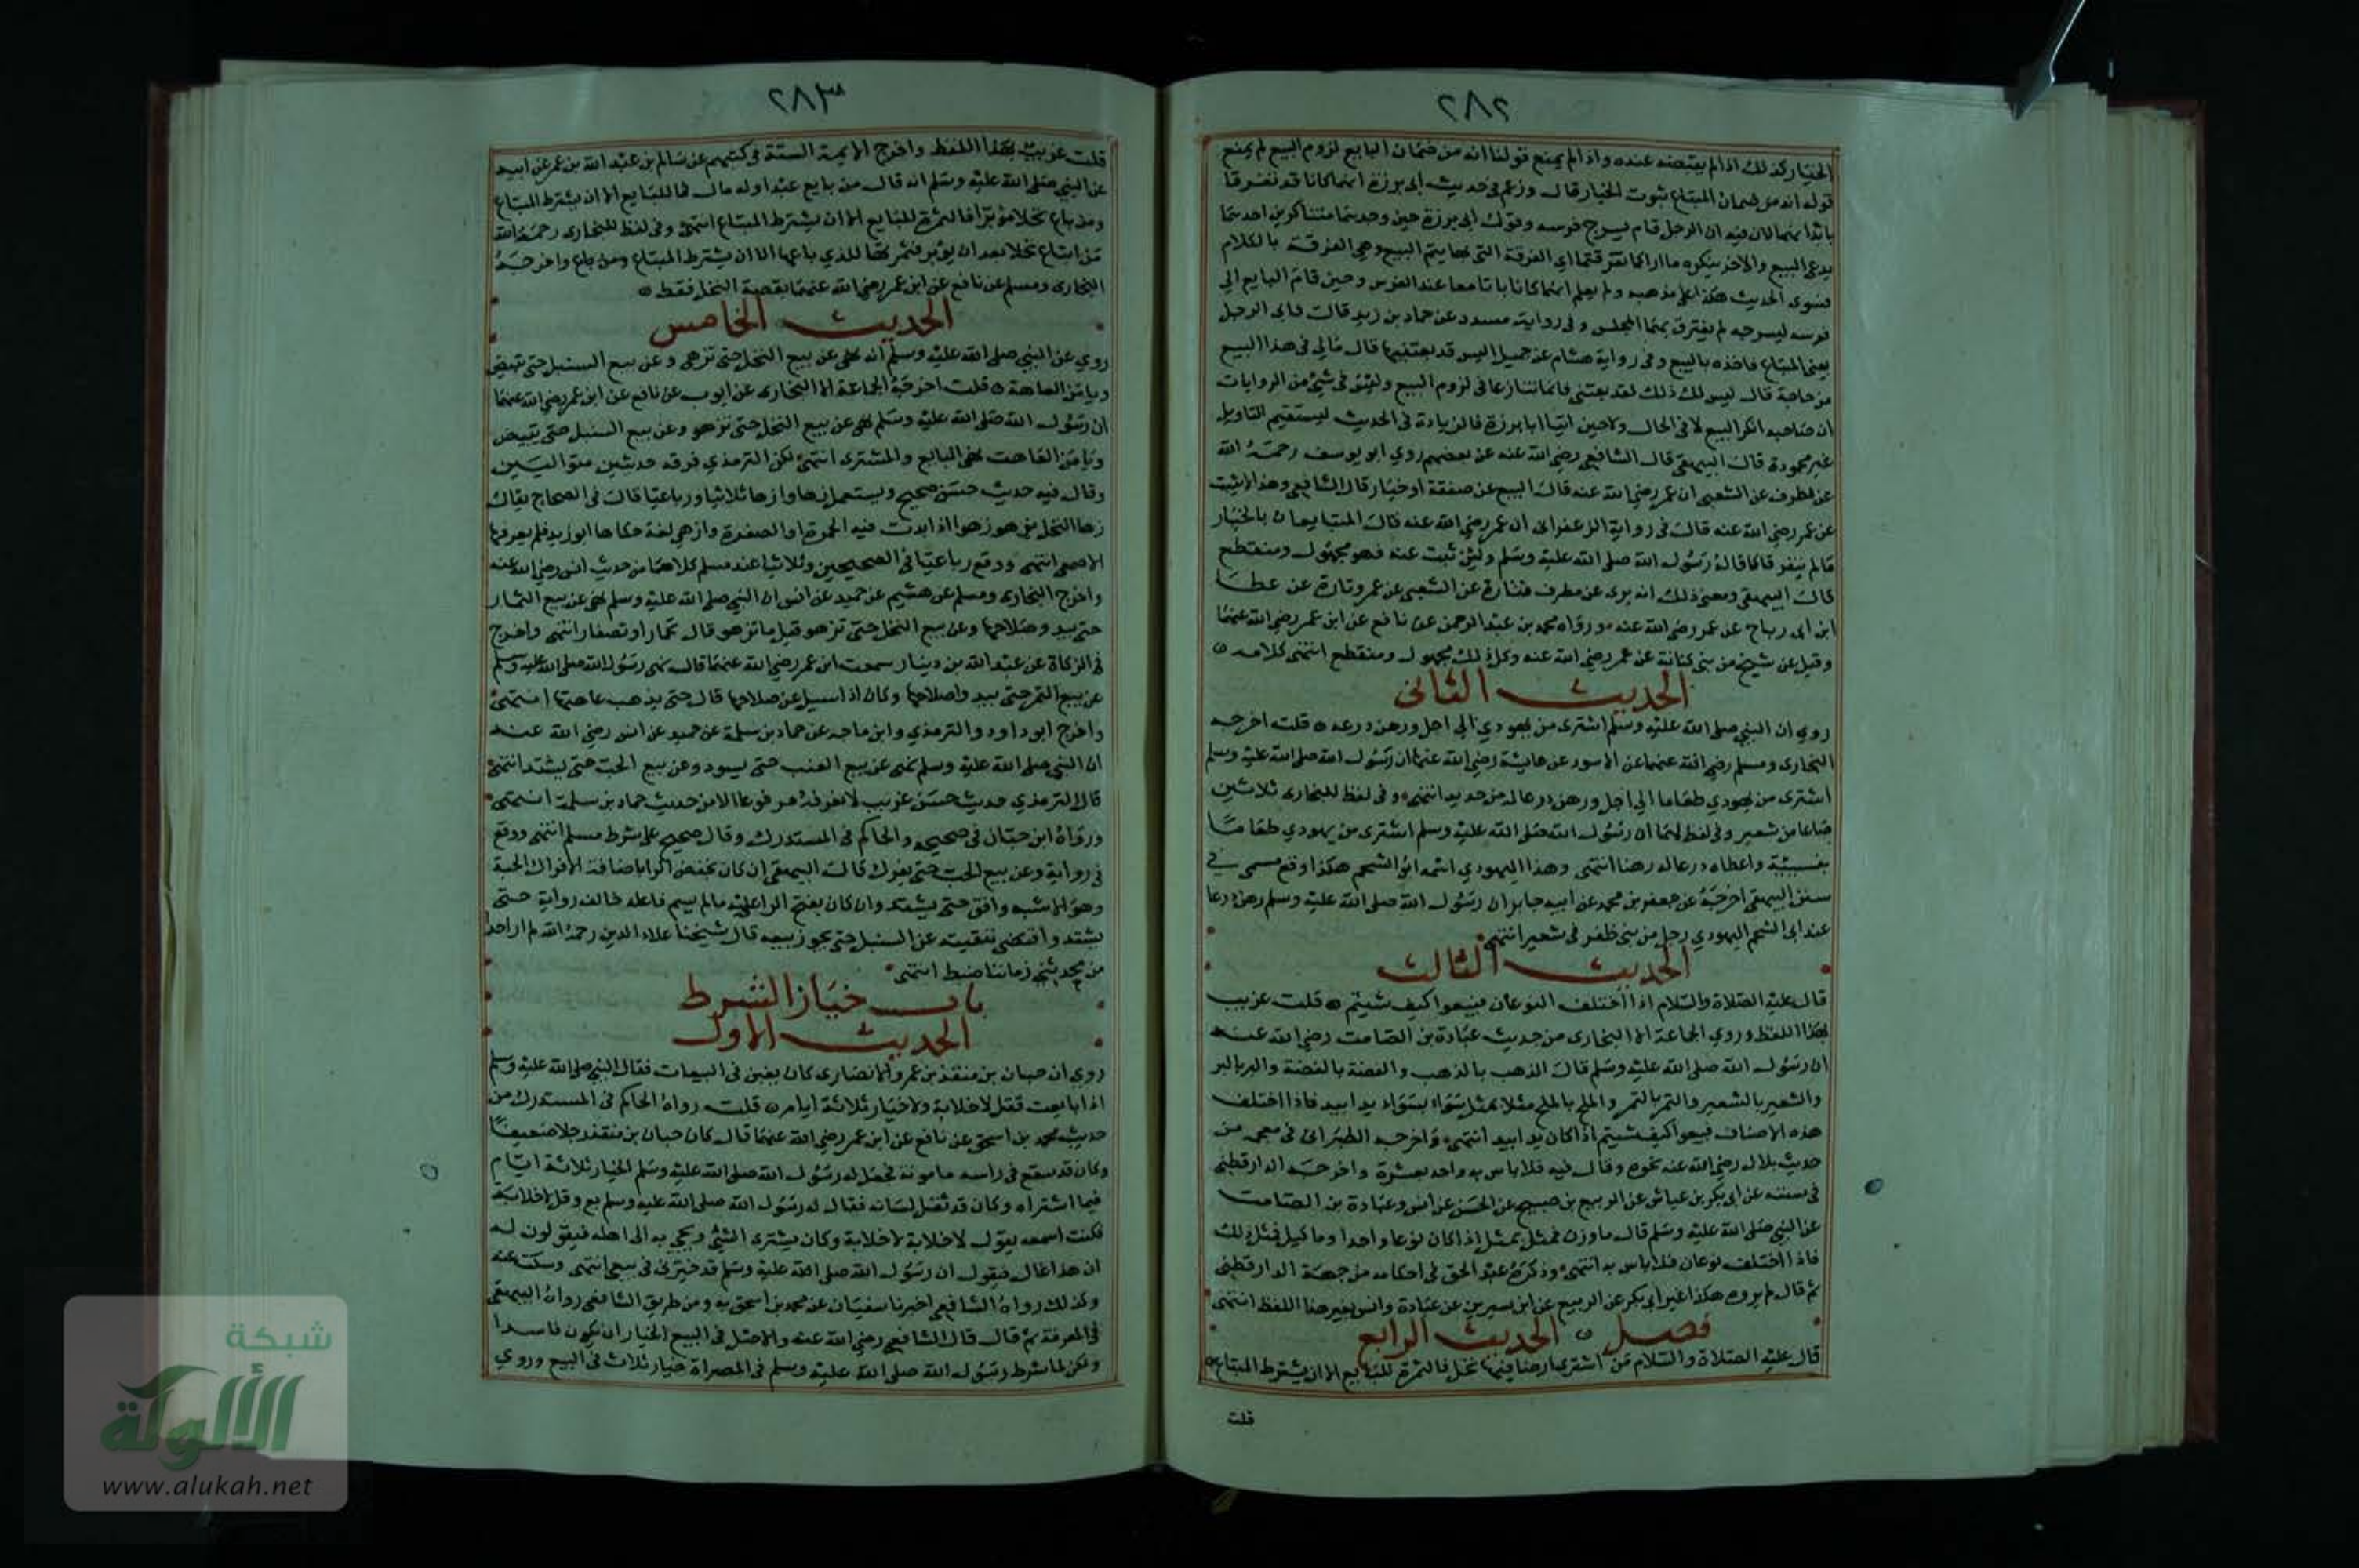 ٢٨٢
الخيار كذلك اذا لم يقبضه عنده واذا لم يمنع قولنا انه من ضمان البايع لزوم البيع لم يمنع
قوله انه من ضمان المبتاع ثبوت الخيار قال وزعم في حديث ابي برزة انهما كانا قد تفرقا
بابدانهما لان فيه ان الرجل قام يسرج فرسه وقول ابي برزة حين وجدهما متناكرين احدهما
يدعي البيع والاخر ينكره ما اراكما تفرقتما اي الفرقة التي بها يتم البيع وهي الفرقة بالكلام
فسوى الحديث هكذا على مذهبه ولم يعلم انهما كانا باتا معا عند الفرس وحين قام البايع الى
فرسه ليسرجه لم يفترق بهما المجلس وفي رواية مسدد عن حماد بن زيد قالت فاتى الرجل
يعني المبتاع فاخذه بالبيع وفي رواية هشام عن جميل اليس قد بعتنيها قال مالي في هذا البيع
من حاجة قال ليس لك ذلك لقد بعتني فانما تنازعا في لزوم البيع وليس في شيء من الروايات
ان صاحبه انكر البيع لا في الحال ولا حين اتيا ابا برزة فالزيادة في الحديث ليستقيم التاويل
غير محمودة قال البيهقي قال الشافعي رضي الله عنه عن بعضهم روي ابو يوسف رحمه الله
عن مطرف عن الشعبي ان عمر رضي الله عنه قال البيع عن صفقة او خيار قال الشافعي وهذا لا يثبت
عن عمر رضي الله عنه قال في رواية الزعفراني ان عمر رضي الله عنه قال المتبايعان بالخيار
مالم يتفرقا كما قاله رسول الله صلى الله عليه وسلم وليس ثبت عنه فهو مجهول ومنقطع
قال البيهقي ومعنى ذلك انه يرى عن مطرف فتارة عن الشعبي عن عمر وتارة عن عطا
ابن ابي رباح عن عمر رضي الله عنه ورواه محمد بن عبد الرحمن عن نافع عن ابن عمر رضي الله عنهما
وقيل عن شيخ من بني كنانة عن عمر رضي الله عنه وكل ذلك مجهول ومنقطع انتهى كلامه
الحديث الثاني
روي ان النبي صلى الله عليه وسلم اشترى من يهودي الى اجل ورهن درعه قلت اخرجه
البخاري ومسلم رضي الله عنهما عن الاسود عن عايشة رضي الله عنها ان رسول الله صلى الله عليه وسلم
اشترى من يهودي طعاما الى اجل ورهن درعا له من حديد انتهى وفي لفظ للبخاري ثلاثين
صاعا من شعير وفي لفظ لهما ان رسول الله صلى الله عليه وسلم اشترى من يهودي طعاما
بنسيئة واعطاه درعا له رهنا انتهى وهذا اليهودي اسمه ابو الشحم هكذا وقع مسمى في
سنن البيهقي اخرجه عن جعفر بن محمد عن ابيه جابر ان رسول الله صلى الله عليه وسلم رهن درعا
عند ابي الشحم اليهودي رجل من بني ظفر في شعير انتهى
الحديث الثالث
قال عليه الصلاة والسلام اذا اختلف النوعان فبيعوا كيف شيتم قلت غريب
بهذا اللفظ وروي الجماعة الا البخاري من حديث عبادة بن الصامت رضي الله عنه
ان رسول الله صلى الله عليه وسلم قال الذهب بالذهب والفضة بالفضة والبر بالبر
والشعير بالشعير والتمر بالتمر والملح بالملح مثلا بمثل سواء بسواء يدا بيد فاذا اختلف
هذه الاصناف فبيعوا كيف شيتم اذا كان يدا بيد انتهى واخرجه الطبراني في معجمه من
حديث بلال رضي الله عنه نحوه وقال فيه فلا باس به واحد بعشرة واخرجه الدارقطني
في سننه عن ابي بكر بن عياش عن الربيع بن صبيح عن الحسن عن انس وعبادة بن الصامت
عن النبي صلى الله عليه وسلم قال ما وزن فمثل بمثل اذا كان نوعا واحدا وما كيل فمثل ذلك
فاذا اختلف نوعان فلا باس به انتهى وذكره عبد الحق في احكامه من جهة الدارقطني
ثم قال لم يروه هكذا غير ابي بكر عن الربيع عن ابن سيرين عن عبادة وانس بغير هذا اللفظ انتهى
فصل الحديث الرابع
قال عليه الصلاة والسلام من اشترى ارضا فيها نخل فالثمرة للبايع الا ان يشترط المبتاع
قلت
٢٨٣
قلت غريب بهذا اللفظ واخرج الايمة الستة في كتبهم عن سالم بن عبد الله بن عمر عن ابيه
عن النبي صلى الله عليه وسلم انه قال من بايع عبدا وله مال فماله للبايع الا ان يشترط المبتاع
ومن باع نخلا مؤبرا فالثمرة للبايع الا ان يشترط المبتاع انتهى وفي لفظ للبخاري رحمه الله
من ابتاع نخلا بعد ان يؤبر فثمرتها للذي باعها الا ان يشترط المبتاع ومن باع واخرجه
البخاري ومسلم عن نافع عن ابن عمر رضي الله عنهما بقصة النخل فقط
الحديث الخامس
روي عن النبي صلى الله عليه وسلم انه نهى عن بيع النخل حتى تزهى وعن بيع السنبل حتى تبيض
ويامن العاهة قلت اخرجه الجماعة الا البخاري عن ايوب عن نافع عن ابن عمر رضي الله عنهما
ان رسول الله صلى الله عليه وسلم نهى عن بيع النخل حتى تزهو وعن بيع السنبل حتى يبيض
ويامن العاهت نهى البايع والمشتري انتهى لكن الترمذي فرقه حديثين متواليين
وقال فيه حديث حسن صحيح ويستعمل زها وازها ثلاثيا ورباعيا قال في الصحاح يقال
زها النخل يزهو زهوا اذا بدت فيه الحمرة او الصفرة وازهى لغة حكاها ابو زيد فلم يعرفها
الاصمعي انتهى ووقع رباعيا في الصحيحين وثلاثيا عند مسلم كلاهما من حديث انس رضي الله عنه
واخرج البخاري ومسلم عن هشيم عن حميد عن انس ان النبي صلى الله عليه وسلم نهى عن بيع الثمار
حتى يبدو صلاحها وعن بيع النخل حتى تزهو قيل ما تزهو قال تحمار او تصفار انتهى واخرج
في الزكاة عن عبد الله بن دينار سمعت ابن عمر رضي الله عنهما قال نهى رسول الله صلى الله عليه وسلم
عن بيع الثمر حتى يبدو صلاحها وكان اذا سيل عن صلاحها قال حتى يذهب عاهتها انتهى
واخرج ابو داود والترمذي وابن ماجه عن حماد بن سلمة عن حميد عن انس رضي الله عنه
ان النبي صلى الله عليه وسلم نهى عن بيع العنب حتى يسود وعن بيع الحب حتى يشتد انتهى
قال الترمذي حديث حسن غريب لا نعرفه مرفوعا الا من حديث حماد بن سلمة انتهى
ورواه ابن حبان في صحيحه والحاكم في المستدرك وقال صحيح على شرط مسلم انتهى ووقع
في رواية وعن بيع الحب حتى يفرك قال البيهقي ان كان بخفض الرا باضافة الافراك الى الحبة
وهو الاشبه وافق حتى يشتد وان كان بفتح الرا على ما لم يسم فاعله خالف رواية حتى
يشتد واقتضى تنقيته عن السنبل حتى يجوز بيعه قال شيخنا علاء الدين رحمه الله لم ار احدا
من محدثي زماننا ضبط انتهى
باب خيار الشرط
الحديث الاول
روي ان حبان بن منقذ بن عمرو الانصاري كان يغبن في البيعات فقال النبي صلى الله عليه وسلم
اذا بايعت فقل لا خلابة ولا خيار ثلاثة ايام قلت رواه الحاكم في المستدرك من
حديث محمد بن اسحق عن نافع عن ابن عمر رضي الله عنهما قال كان حبان بن منقذ رجلا ضعيفا
وكان قد سفع في راسه مامونة فجعل له رسول الله صلى الله عليه وسلم الخيار ثلاثة ايام
فيما اشتراه وكان قد ثقل لسانه فقال له رسول الله صلى الله عليه وسلم بع وقل لا خلابة
فكنت اسمعه يقول لا خلابة لا خلابة وكان يشتري الشيء ويجيء به الى اهله فيقولون له
ان هذا غال فيقول ان رسول الله صلى الله عليه وسلم قد خيرني في بيعي انتهى وسكت عنه
وكذلك رواه الشافعي اخبرنا سفيان عن محمد بن اسحق به ومن طريق الشافعي رواه البيهقي
في المعرفة ثم قال قال الشافعي رضي الله عنه والاصل في البيع الخيار ان يكون فاسدا
ولكن لما شرط رسول الله صلى الله عليه وسلم في المصراة خيار ثلاث في البيع وروي
شبكة
الألوكة
www.alukah.net